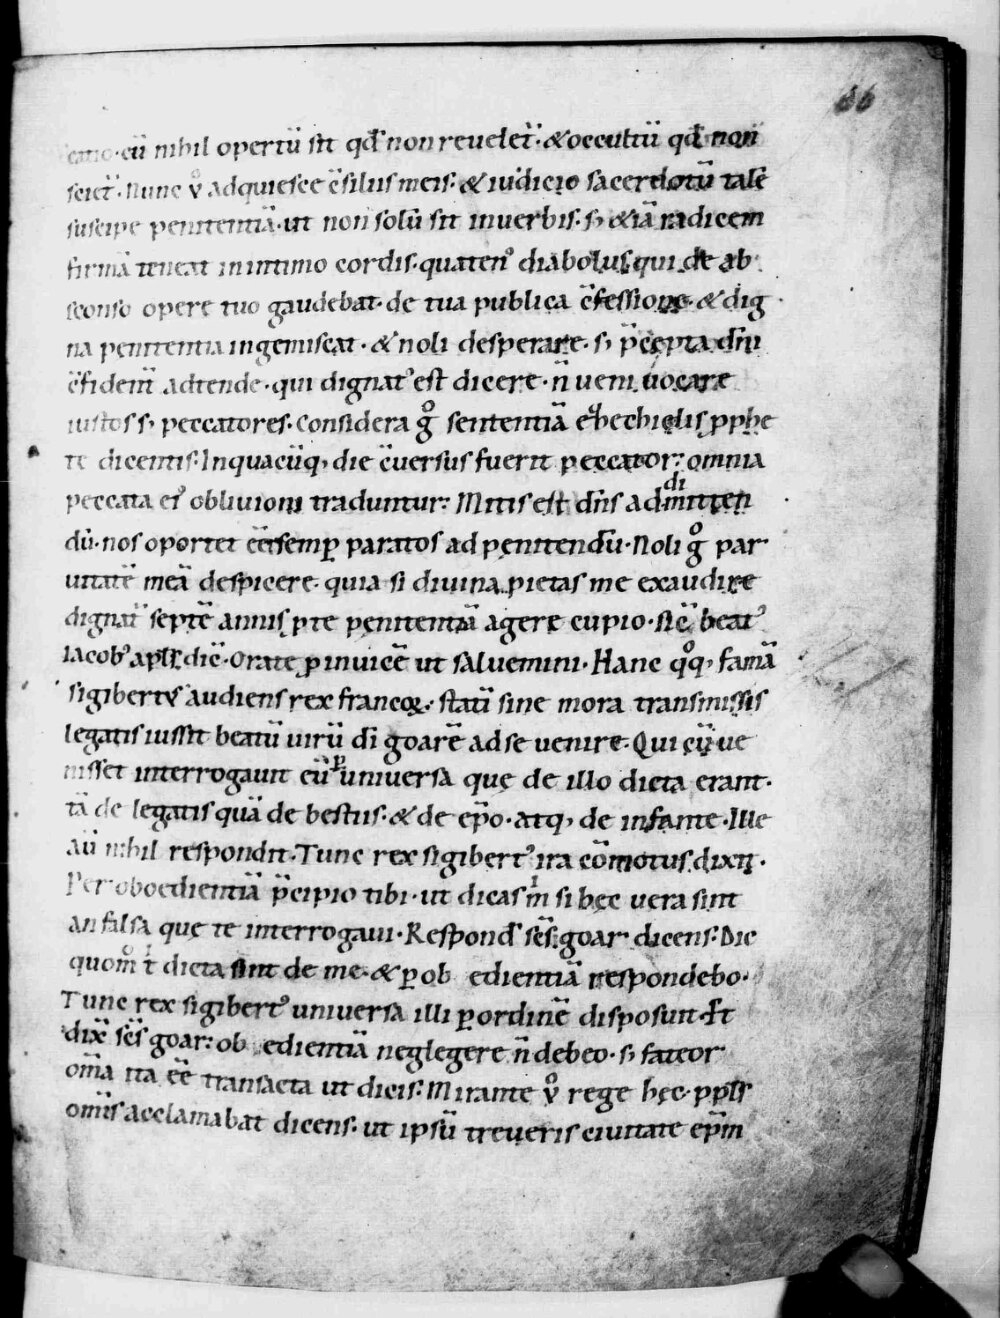 66
cano·cū nihil opertū sit qđ non reueleť· &occultū qđ non
scieť· Nunc v̊ adquiesce c̄siliis meis· & iudicio sacerdotū talē
suscipe penitentiā· ut non solū sit inuerbis· s; &iā radicem
firmā teneat inintimo cordis· quaten᾽ diabolus qui de ab
sconso opere tuo gaudebat· de tua publica c̄fessione· & dig
na penitentia ingemiscat· & noli desperare· s; p̄cepta dn̄i
c̄fidenť adtende· qui dignat᾽ est dicere· n̄ ueni uocare
iustos s; peccatores· Considera g̊ sententiā ezechielis pphe
te dicentis· Inquacūq; die c̄uersus fuerit peccator: omnia
peccata ei᾽ obliuioni traduntur: Mitis est dn̄s ad mitten
di
dū· nos oportet eē semp̱ paratos ad penitendū· Noli g̊ par
uitatē meā despicere· quia si diuina pietas me exaudire
dignať septē annis p te penitentiā agere cupio· Sic̄ beat᾽
Iacob᾽ apls̄ dic̄· Orate p̱ inuicē ut saluemini· Hanc q̊q; famā
sigibertus audiens rex francoꝝ· statī sine mora transmissis
legatis iussit beatū uirū di goarē adse uenire· Qui cū ue
nisset interrogauit eū p̱ uniuersa quę de illo dicta erant·
tā de legatis quā de bestiis· & de ep̄o· atq; de infante· Ille
aū nihil respondit· Tunc rex sigibert᾽ ira cōmotus dixit·
Per oboedientiā p̄cipio tibi· ut dicas m̊ si hęc uera sint
an falsa quę te interrogaui· Respond̄ sc̄s goar dicens: Dic
quom̊ t̄ dicta sint de me· & p̱ ob edientiā respondebo·
Tunc rex sigibert᾽ uniuersa illi p̱ordinē disposuit· Et
dix̄ sc̄s goar: ob edientiā neglegere n̄ debeo· s; fateor
om̄a ita eē transacta ut dicis: Mirante v̊ rege hęc· ppls̄
om̄is acclamabat dicens· ut ipsū treueris ciuitate ep̄m